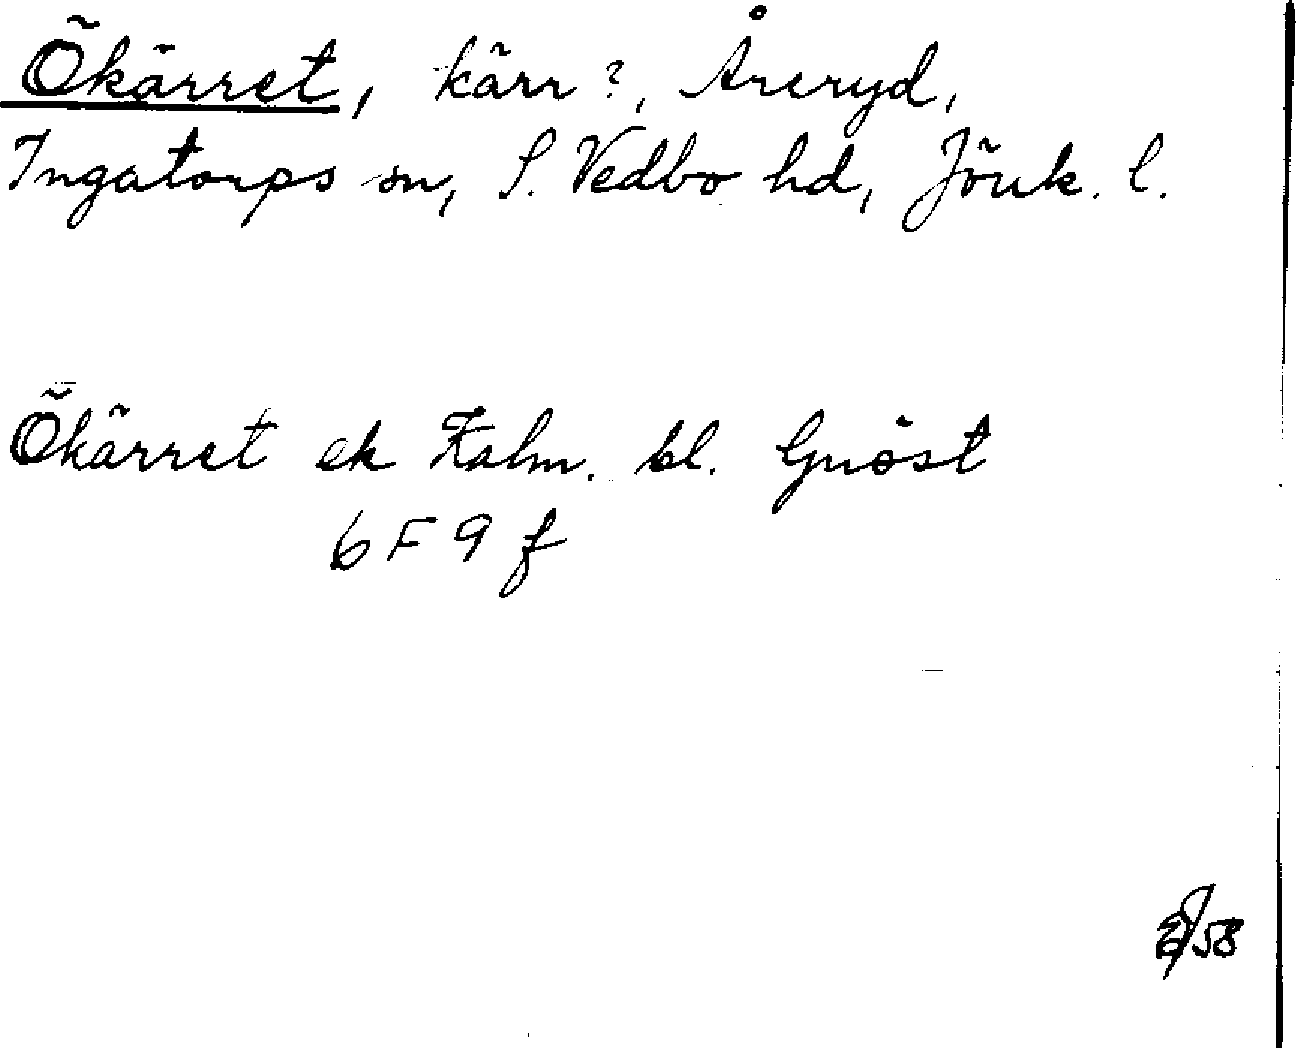 Ökärret, kärr?, Åreryd,
Ingatorps sn, S. Vedbo hd, Jönk. l.
Ökärret ek Kalm. bl. Gnöst
6 F 9 f
/58